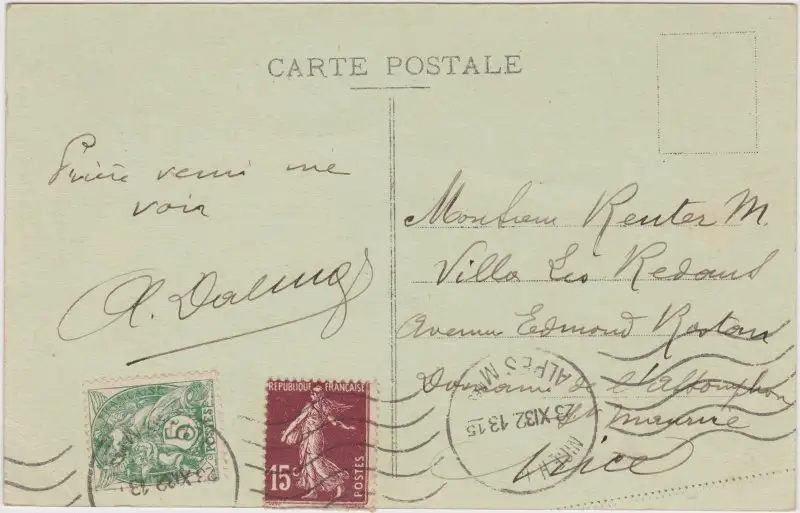 CARTE POSTALE
Prière venir me
voir
A.
Monsieur Reuter M.
Villa Les
Avenue Edmond Rostan
Domaine de
St Maurice
Nice
ALPES Mmes
23 XI 32 13 15
NICE
5
23 XI 32 13
REPUBLIQUE FRANÇAISE
15c
POSTES